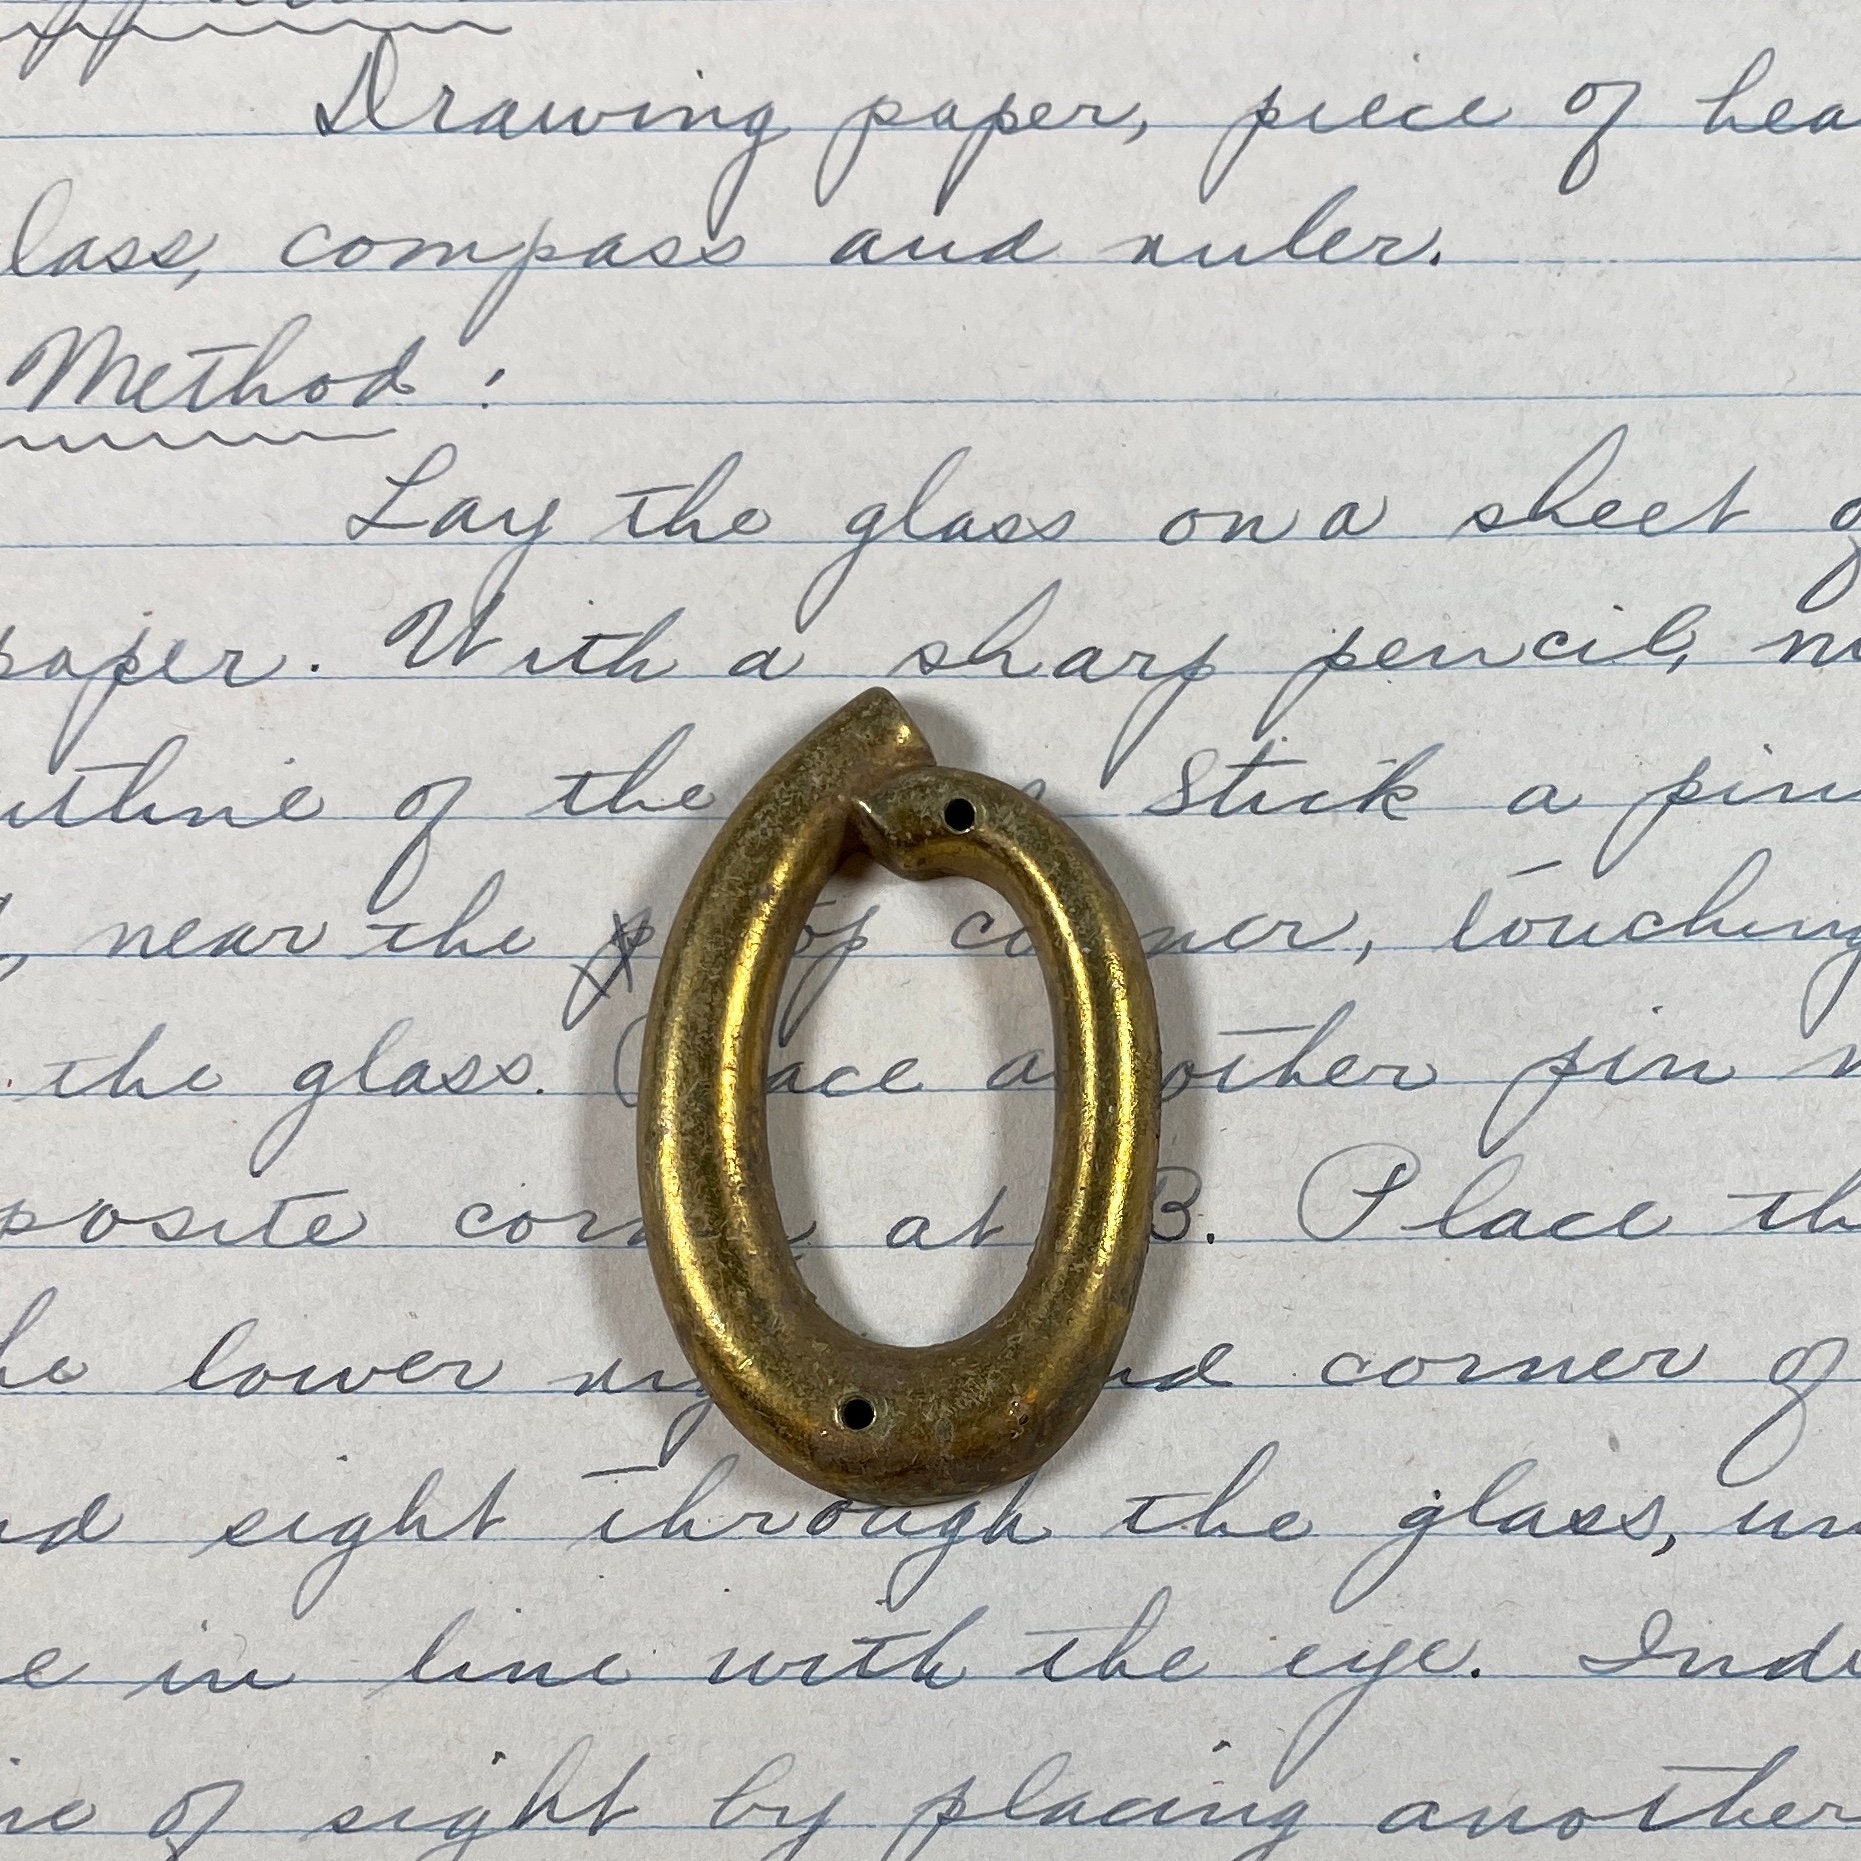 Drawing paper, piece of hea
lass, compass and ruler.
Method :
Lay the glass on a sheet o
paper. With a sharp pencil, m
utline of the Stick a pin
near the top corner, touching
the glass. Place another pin n
posite corn at B. Place th
he lower rig nd corner of
nd sight through the glass, un
e in line with the eye. Indi
ne of sight by placing another
0